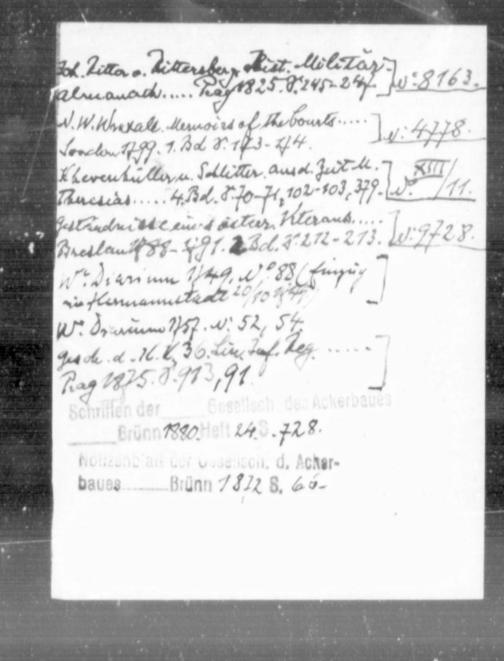 Joh. Ritter v. Rittersberg, Hist. Militär-
Almanach..... Prag 1825. S. 245-247. N° 8163.
N. W. Wraxall. Memoirs of the Courts.....
London 1799. 1. Bd. S. 173-174. N: 4778.
Khevenhüller u. Schlitter. aus d. Zeit M.
Theresias..... 4. Bd. S. 70-71, 102-103, 379. N° XIII/11.
Geständnisse eines österr. Veterans.....
Breslau 1788-1791. 2. Bd. S. 212-213. N: 9728.
W. Diarium 1749. N° 88 (Einzug
in Hermannstadt 20/10 1749)
W. Diarium 1757. N: 52, 54.
Gesch. d. 36. Lin. Inf. Reg. ......
Prag 1875. S. 913, 91.
Schriften der Gesellsch. des Ackerbaues
Brünn 1880. Heft 24. S. 728.
Notizenblatt der Gesellsch. d. Acker-
baues Brünn S.